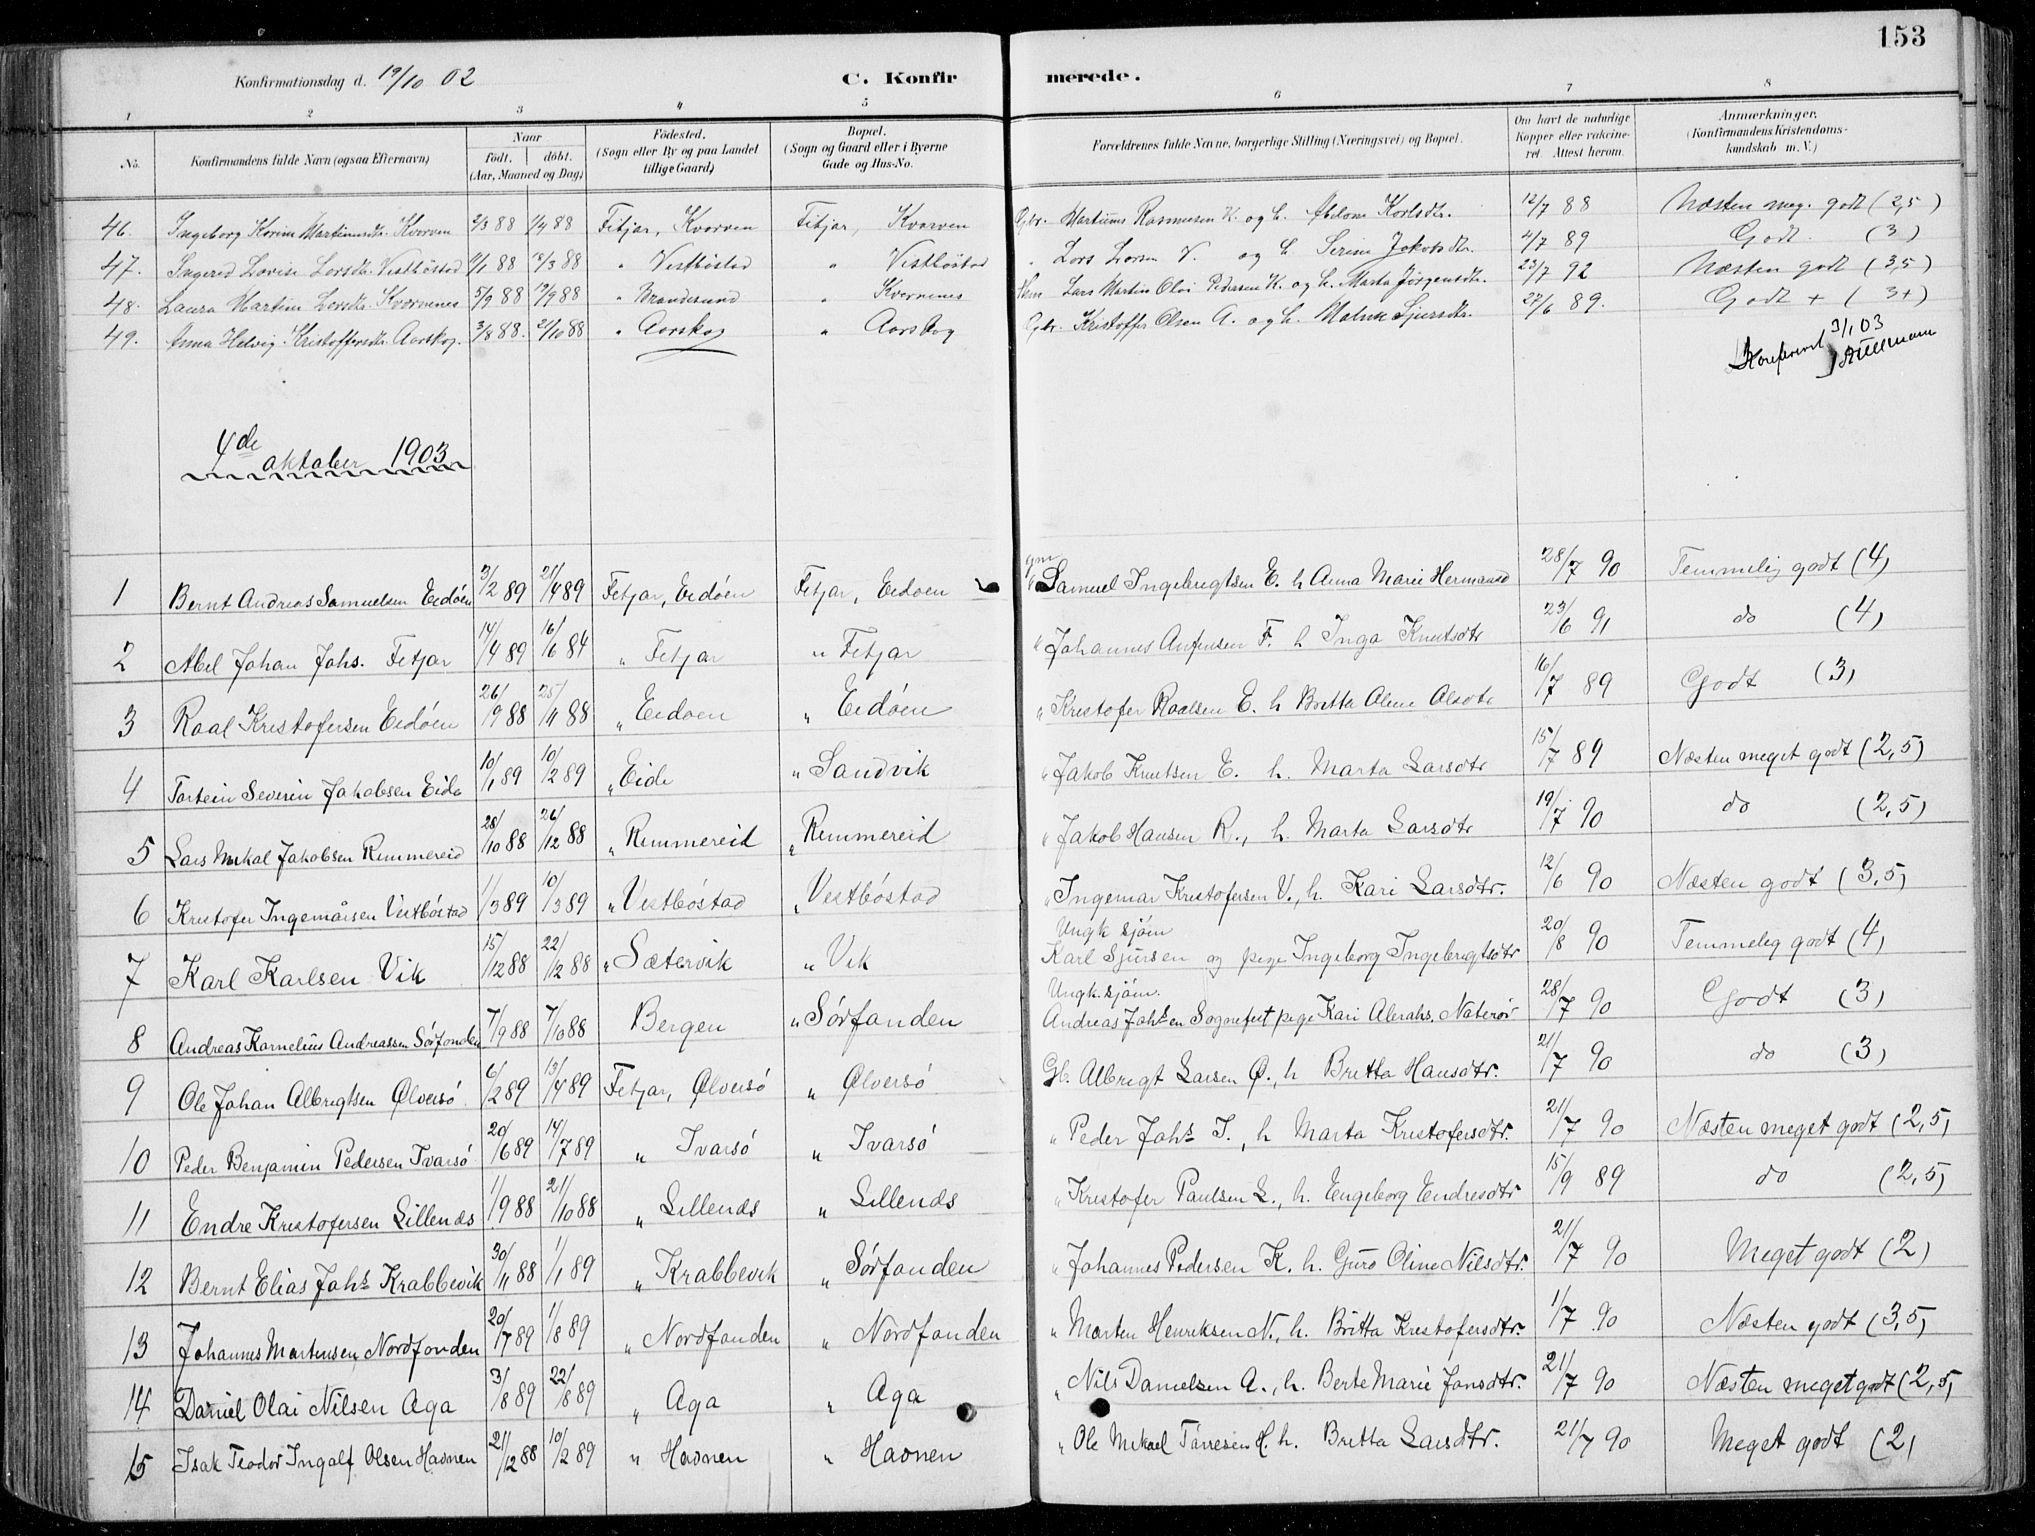 153
Konfirmationsdag d. 19/10 02
C. Konfirmerede.
1 2 3 4 5 6 7 8
No. Konfirmandens fulde Navn (ogsaa Efternavn) Naar født. døbt. (Aar, Maaned og Dag) Fødested. (Sogn eller By og paa Landet tillige Gaard) Bopæl. (Sogn og Gaard eller i Byerne Gade og Hus-No. Forældrenes fulde Navne, borgerlige Stilling (Næringsvei) og Bopæl. Om havt de naturlige Kopper eller vakcineret. Attest herom. Anmærkninger. (Konfirmandens Kristendomskundskab m. V.)
46. Ingeborg Korine Martinusdtr. Kvorven 2/3 88 1/4 88 Fitjar, Kvorven Fitjar, Kvorven Gbr. Martinus Rasmusen K. og h. Karlsdtr. 12/7 88 Næsten meg. godt (2,5)
47. Ingered Lovise Larsdtr. Vestbøstad 2/1 88 18/3 88 " Vestbøstad " Vestbøstad " Lars Larsen V. og h. Serine Jakobsdtr. 4/7 89 Godt. (3)
48. Laura Martine Larsdtr. Kvernenes 5/9 88 19/9 88 " Brandesund " Kvernenes Lars Martin Olai Pedersen K. og h. Marta Jørgensdtr. 23/7 92 Næsten godt (3,5)
49. Anna Helvig Kristoffersdtr. Aarskog. 3/8 88. 21/10 88 " Aarskog " Aarskog Gbr. Kristoffer Olsen A. og h. Sjursdtr. 27/6 89. Godt + (3+)
Konfereret 3/1 03
4de oktober 1903
1 Bernt Andreas Samuelsen Eidøen 3/2 89 21/4 89 Fitjar, Eidøen Fitjar, Eidøen Samuel Ingebrigtsen E. h Anna Marie Hermansd 28/7 90 Temmelig godt (4)
2 Abel Johan Johs. Fitjar 14/4 89 16/6 84 " Fitjar " Fitjar " Johannes Anfinsen F. h Inga Knutsdtr 23/6 91 do (4)
3 Roal Kristofersen Eidøen 26/9 88 25/11 88 " Eidøen " Eidøen " Kristofer Roalsen E. h Britta Oline Olsdtr 16/7 89 Godt (3)
4 Tortein Severin Jakobsen Eide 10/1 89 10/2 89 " Eide " Sandvik " Jakob Knutsen E. h. Marta Larsdtr 15/7 89 Næsten meget godt (2,5)
5 Lars Mikal Jakobsen Rimmereid 28/10 88 26/12 88 " Rimmereid " Rimmereid " Jakob Hansen R., h. Marta Larsdtr 19/7 90 do (2,5)
6 Kristofer Ingemarsen Vestbøstad 1/3 89 10/3 89 " Vestbøstad " Vestbøstad " Ingemar Kristofersen V., h. Kari Larsdtr. 12/6 90 Næsten godt (3,5)
7 Karl Karlsen Vik 15/12 88 22/12 88 " Sætervik " Vik Ungk sjøm Karl Sjursen og pige Ingeborg Ingebrigtsdtr 20/8 90 Temmelig godt (4)
8 Andreas Kornelius Andreassen Sørfonden 7/9 88 7/10 88 Bergen " Sørfonden Ungk. sjøm. Andreas Johsen Sognefest pige Kari Abrahs. Naterør 28/7 90 Godt (3)
9 Ole Johan Albregtsen Ølversø 6/2 89 13/4 89 Fitjar, Ølversø " Ølversø Gb. Albregt Larsen Ø., h Britta Hansdtr. 21/7 90 do (3)
10 Peder Benjamin Pedersen Ivarsø 20/6 89 14/7 89 " Ivarsø " Ivarsø " Peder Johs I., h Marta Kristofersdtr. 21/7 90 Næsten meget godt (2,5)
11 Endre Kristofersen Lillenæs 1/9 88 21/10 88 " Lillenæs " Lillenæs " Kristofer Paulsen L., h. Engeborg Endresdtr 15/9 89 do (2,5)
12 Bernt Elias Johs Krabbevik 30/11 88 1/1 89 " Krabbevik " Sørfonden " Johannes Pedersen K. h. Guro Oline Nilsdtr. 21/7 90 Meget godt (2)
13 Johannes Martensen Nordfonden 20/7 89 1/8 89 " Nordfonden " Nordfonden " Morten Henriksen N., h. Britta Kristofersdtr. 1/7 90 Næsten godt (3,5)
14 Daniel Olai Nilsen Aga 3/8 89 22/8 89 " Aga " Aga " Nils Danielsen A., h. Berte Marie Jonsdtr. 21/7 90 Næsten meget godt (2,5)
15 Isak Teodor Ingolf Olsen Havnen 21/12 88 10/2 89 " Havnen " Havnen " Ole Mikael Tørresen H. h. Britta Larsdtr. 21/7 90 Meget godt (2)